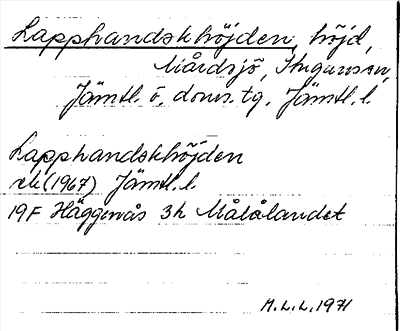 Lapphandskhöjden, höjd,
Mårdsjö,
Jämtl. ö. doms. tg. Jämtl. l.
Lapphandskhöjden
ek (1967) Jämtl. l.
19F Häggenås 3h Målålandet
M.L.L. 1971